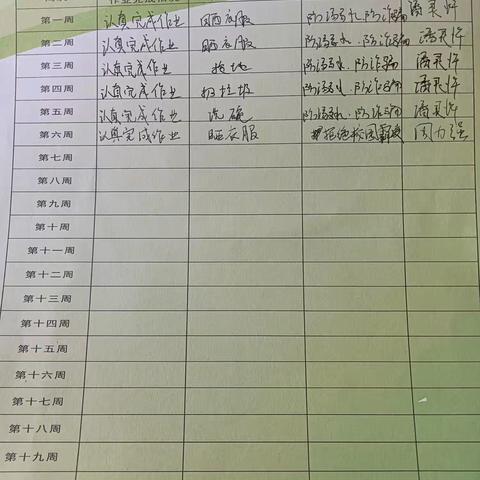 第一周 认真完成作业 晒衣服 防溺水,防诈骗
第二周 认真完成作业 晒衣服 防溺水.防诈骗
第三周 认真完成作业 拖地 防溺水.防诈骗
第四周 认真完成作业 扫垃圾 防溺水.防诈骗
第五周 认真完成作业 洗碗 防溺水.防诈骗
第六周 认真完成作业 晒衣服 拒绝校园霸凌 周力强
第七周
第八周
第九周
第十周
第十一周
第十二周
第十三周
第十四周
第十五周
第十六周
第十七周
第十八周
第十九周